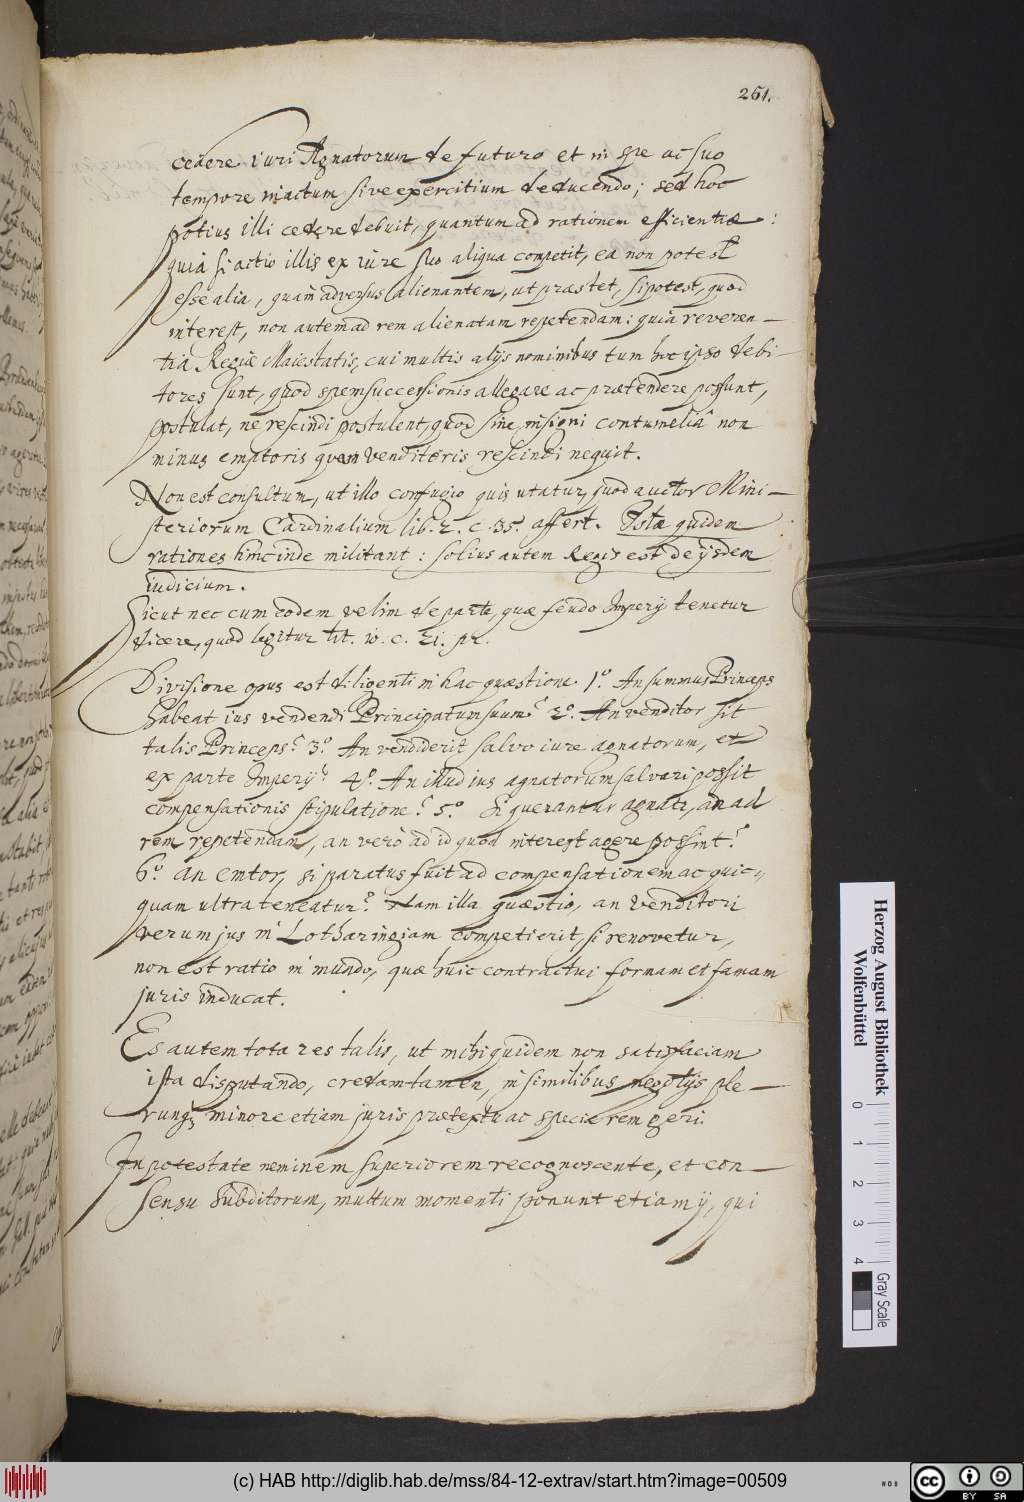 261.
cedere iuri Agnatorum de futuro et in spe ac suo
tempore in actum sive exercitium deducendo; sed hoc
potius illi cedere debuit, quantum ad rationem efficientiæ:
quia si actio illis ex iure suo aliqua competit, ea non potest
esse alia, quàm adversus alienantem, ut præstet, si potest, quod
interest, non autem ad rem alienatam repetendam: quia reveren-
tia Regiæ Maiestatis, cui multis alijs nominibus tum hoc ipso debi-
tores sunt, quod spem successionis allegare ac prætendere possunt,
postulat, ne rescindi postulent, quod sine insigni contumeliâ non
minus emptoris quam venditoris rescindi nequit.
Non est consultum, ut illo confugio quis utatur, quod auctor Mini-
steriorum Cardinalium lib. 2. c. 35. affert. Istæ quidem
rationes hincinde militant: solius autem Regis est de ijsdem
iudicium.
Sicut nec cum eodem velim de parte, quæ feudo Imperij tenetur
dicere, quod legitur lit. w. c. 21. pr.
Divisione opus est diligenti in hac quæstione 1º. An summus Princeps
habeat ius vendendi Principatum suum? 2º. An venditor sit
talis Princeps? 3º. An vendiderit salvo iure agnatorum, et
ex parte Imperij? 4º. An illud ius agnatorum salvari possit
compensationis stipulatione? 5º. Si querantur agnati, an ad
rem repetendam, an verò ad id quod interest agere possint?
6º. an emtor, si paratus fuit ad compensationem ac quic-
quam ultra teneatur? Nam illa quæstio, an Venditori
verum jus in Lotharingiam competierit, si renovetur,
non est ratio in mundo, quæ huic contractui formam et famam
juris inducat.
Es autem tota res talis, ut mihi quidem non satisfaciam
ista disputando, credam tamen, in similibus negotijs ple-
runq; minore etiam juris prætextu ac specie rem geri.
In potestate neminem superiorem recognoscente, et con-
sensu subditorum, multum momenti ponunt etiam ij, qui
Herzog August Bibliothek
Wolfenbüttel
0 1 2 3 4
Gray Scale
(c) HAB http://diglib.hab.de/mss/84-12-extrav/start.htm?image=00509
cc BY SA